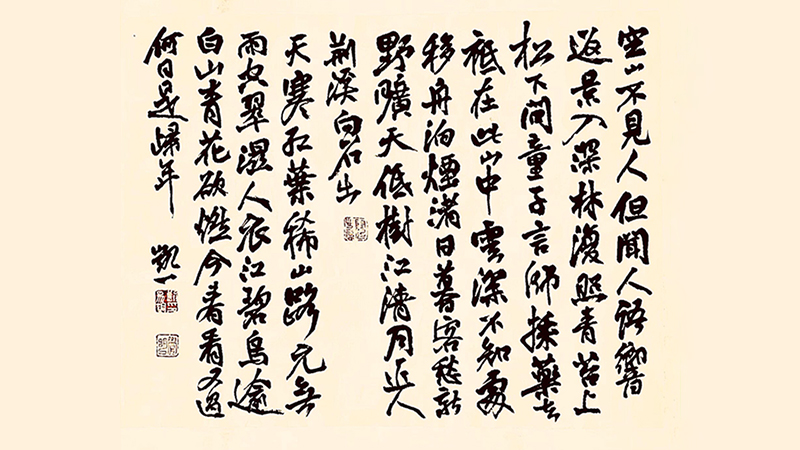 空山不見人但聞人語響
返景入深林復照青苔上
松下問童子言師採藥去
祗在此山中雲深不知處
移舟泊煙渚日暮客愁新
野曠天低樹江清月近人
荊溪白石出
天寒紅葉稀山路元無
雨空翠濕人衣江碧鳥逾
白山青花欲燃今春看又過
何日是歸年 凱一